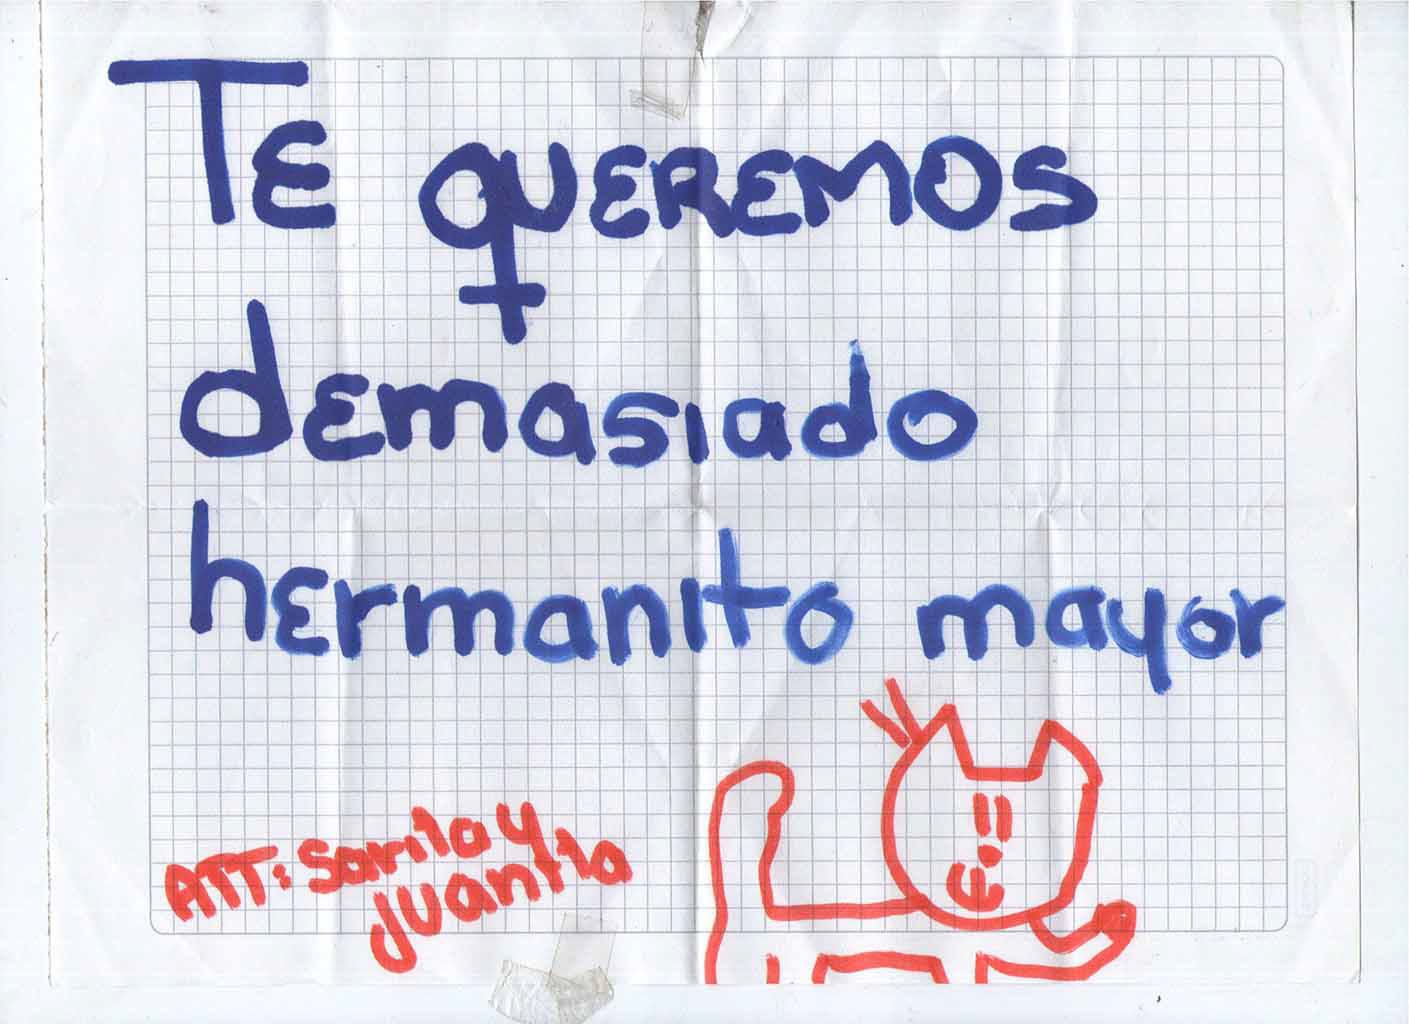 Te queremos
demasiado
hermanito mayor
ATT: Sarita y
Juanita